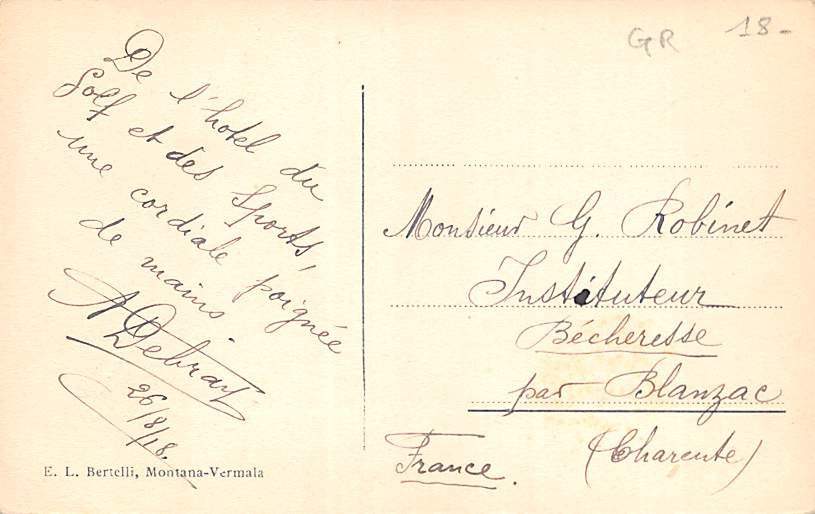 GR 18-
De l'hotel du
Golf et des Sports,
une cordiale poignée
de mains.
ADebray
26/8/18.
E. L. Bertelli, Montana-Vermala
Monsieur G. Robinet
Instituteur
Bécheresse
par Blanzac
(Charente)
France.